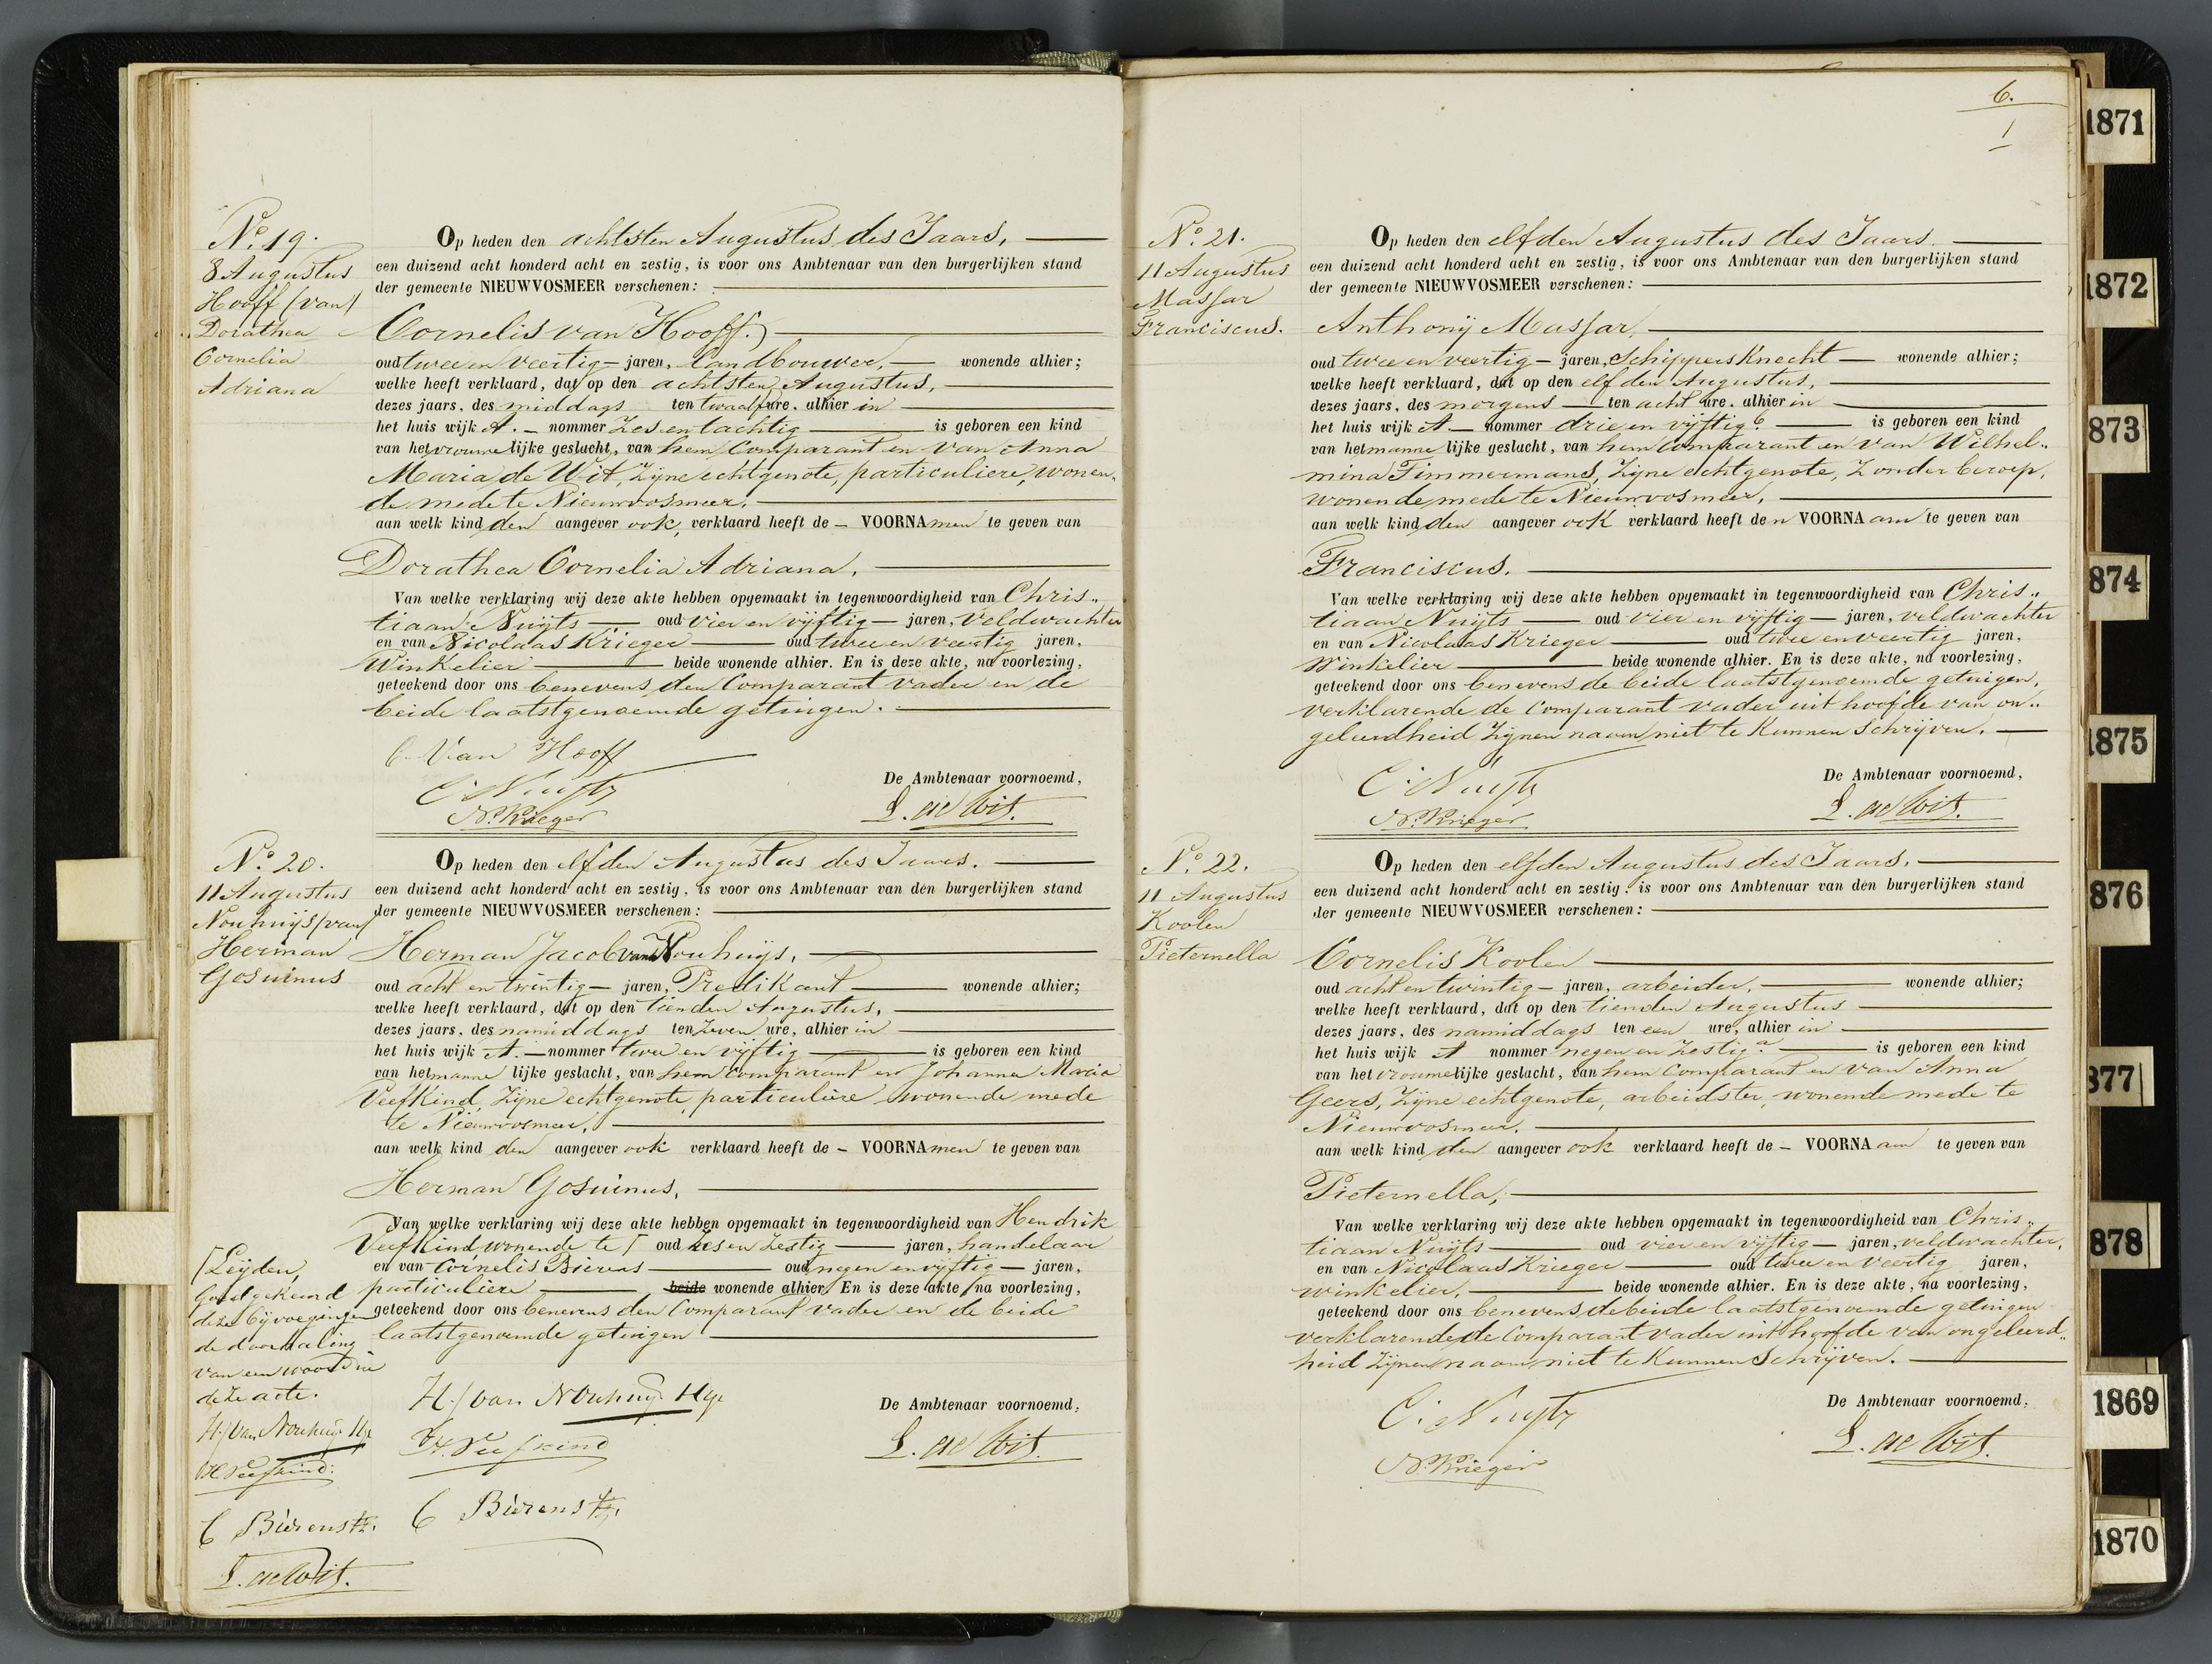 No. 19.
8 Augustus
Hooff (van)
Dorathea
Cornelia
Adriana
Op heden den achtsten Augustus des Jaars,
een duizend acht honderd acht en zestig, is voor ons Ambtenaar van den burgerlijken stand
der gemeente NIEUWVOSMEER verschenen:
Cornelis van Hooff.
oud twee en veertig jaren, landbouwer, wonende alhier;
welke heeft verklaard, dat op den achtsten Augustus,
dezes jaars, des middags ten twaalf ure, alhier in
het huis wijk A. nommer zes en tachtig is geboren een kind
van het vrouwelijke geslacht, van hem Comparant en van Anna
Maria de Wit, Zijne echtgenote, particuliere, wonen„
de mede te Nieuwvosmeer.
aan welk kind den aangever ook verklaard heeft de – VOORNAmen te geven van
Dorathea Cornelia Adriana.
Van welke verklaring wij deze akte hebben opgemaakt in tegenwoordigheid van Chris„
tiaan Nuijts oud vier en vijftig jaren, veldwachter
en van Nicolaas Krieger oud twee en veertig jaren,
Winkelier beide wonende alhier. En is deze akte, na voorlezing,
geteekend door ons benevens den Comparant vader en de
beide laatstgenoemde getuigen.
C. Van Hooff
C: Nuijts
N. Krieger
De Ambtenaar voornoemd,
L. de Wit.
No. 20.
11 Augustus
Nouhuijs (van)
Herman
Gosuinus
Op heden den elfden Augustus des Jaars.
een duizend acht honderd acht en zestig, is voor ons Ambtenaar van den burgerlijken stand
der gemeente NIEUWVOSMEER verschenen:
Herman Jacob van Nouhuijs,
oud acht en twintig jaren, Predikant wonende alhier;
welke heeft verklaard, dat op den tienden Augustus,
dezes jaars, des namiddags ten zeven ure, alhier in
het huis wijk A. nommer twee en vijftig is geboren een kind
van het mannelijke geslacht, van hem Comparant en Johanna Maria
Veefkind, Zijne echtgenote, particulière wonende mede
te Nieuwvosmeer,
aan welk kind den aangever ook verklaard heeft de – VOORNAmen te geven van
Herman Gosuinus,
Van welke verklaring wij deze akte hebben opgemaakt in tegenwoordigheid van Hendrik
Veefkind, wonende te ⌈ oud zes en zestig jaren, handelaar
en van Cornelis Bierens oud negen en vijftig jaren,
particuliere beide wonende alhier. En is deze akte, na voorlezing,
geteekend door ons benevens den Comparant vader en de beide
laatstgenoemde getuigen
⌈Leijden,
Goedgekeurd
deze bijvoeging en
de doorhaling
van een woord in
deze acte.
H J van Nouhuijs Hgz
H Veefkind
C Bierens
L. de Wit.
H J van Nouhuijs Hgz
H. Veefkind
C Bierens
De Ambtenaar voornoemd,
L. de Wit.
6.
1
No. 21.
11 Augustus
Massar
Franciscus.
Op heden den elfden Augustus des Jaars
een duizend acht honderd acht en zestig, is voor ons Ambtenaar van den burgerlijken stand
der gemeente NIEUWVOSMEER verschenen:
Anthonij Massar,
oud twee en veertig jaren, Schippers Knecht wonende alhier;
welke heeft verklaard, dat op den elfden Augustus,
dezes jaars, des morgens ten acht ure, alhier in
het huis wijk A nommer drie en vijftig b is geboren een kind
van het mannelijke geslacht, van hem Comparant en van Wilhel„
mina Timmermans, Zijne echtgenote, Zonder beroep,
wonende mede te Nieuwvosmeer,
aan welk kind den aangever ook verklaard heeft den VOORNAam te geven van
Franciscus.
Van welke verklaring wij deze akte hebben opgemaakt in tegenwoordigheid van Chris„
tiaan Nuijts oud vier en vijftig jaren, veldwachter
en van Nicolaas Krieger oud twee en veertig jaren,
Winkelier beide wonende alhier. En is deze akte, na voorlezing,
geteekend door ons benevens de beide laatstgenoemde getuigen,
verklarende de Comparant vader uit hoofde van on„
geleerdheid Zijnen naam niet te Kunnen Schrijven.
C: Nuijts
N. Krieger
De Ambtenaar voornoemd,
L. de Wit.
No. 22.
11 Augustus
Koolen
Pieternella
Op heden den elfden Augustus des Jaars,
een duizend acht honderd acht en zestig, is voor ons Ambtenaar van den burgerlijken stand
der gemeente NIEUWVOSMEER verschenen:
Cornelis Koolen
oud acht en twintig jaren, arbeider, wonende alhier;
welke heeft verklaard, dat op den tienden Augustus
dezes jaars, des namiddags ten een ure, alhier in
het huis wijk A nommer negen en zestig a is geboren een kind
van het vrouwelijke geslacht, van hem Comparant en van Anna
Geers, Zijne echtgenote, arbeidster, wonende mede te
Nieuwvosmeer.
aan welk kind den aangever ook verklaard heeft de – VOORNAam te geven van
Pieternella,
Van welke verklaring wij deze akte hebben opgemaakt in tegenwoordigheid van Chris„
tiaan Nuijts oud vier en vijftig jaren, veldwachter,
en van Nicolaas Krieger oud twee en veertig jaren,
winkelier, beide wonende alhier. En is deze akte, na voorlezing,
geteekend door ons benevens de beide laatstgenoemde getuigen
verklarende de Comparant vader uit hoofde van ongeleerd„
heid Zijnen naam niet te Kunnen Schrijven.
C: Nuijts
N. Krieger
De Ambtenaar voornoemd,
L. de Wit.
1871
1872
873
874
1875
876
877
878
1869
1870